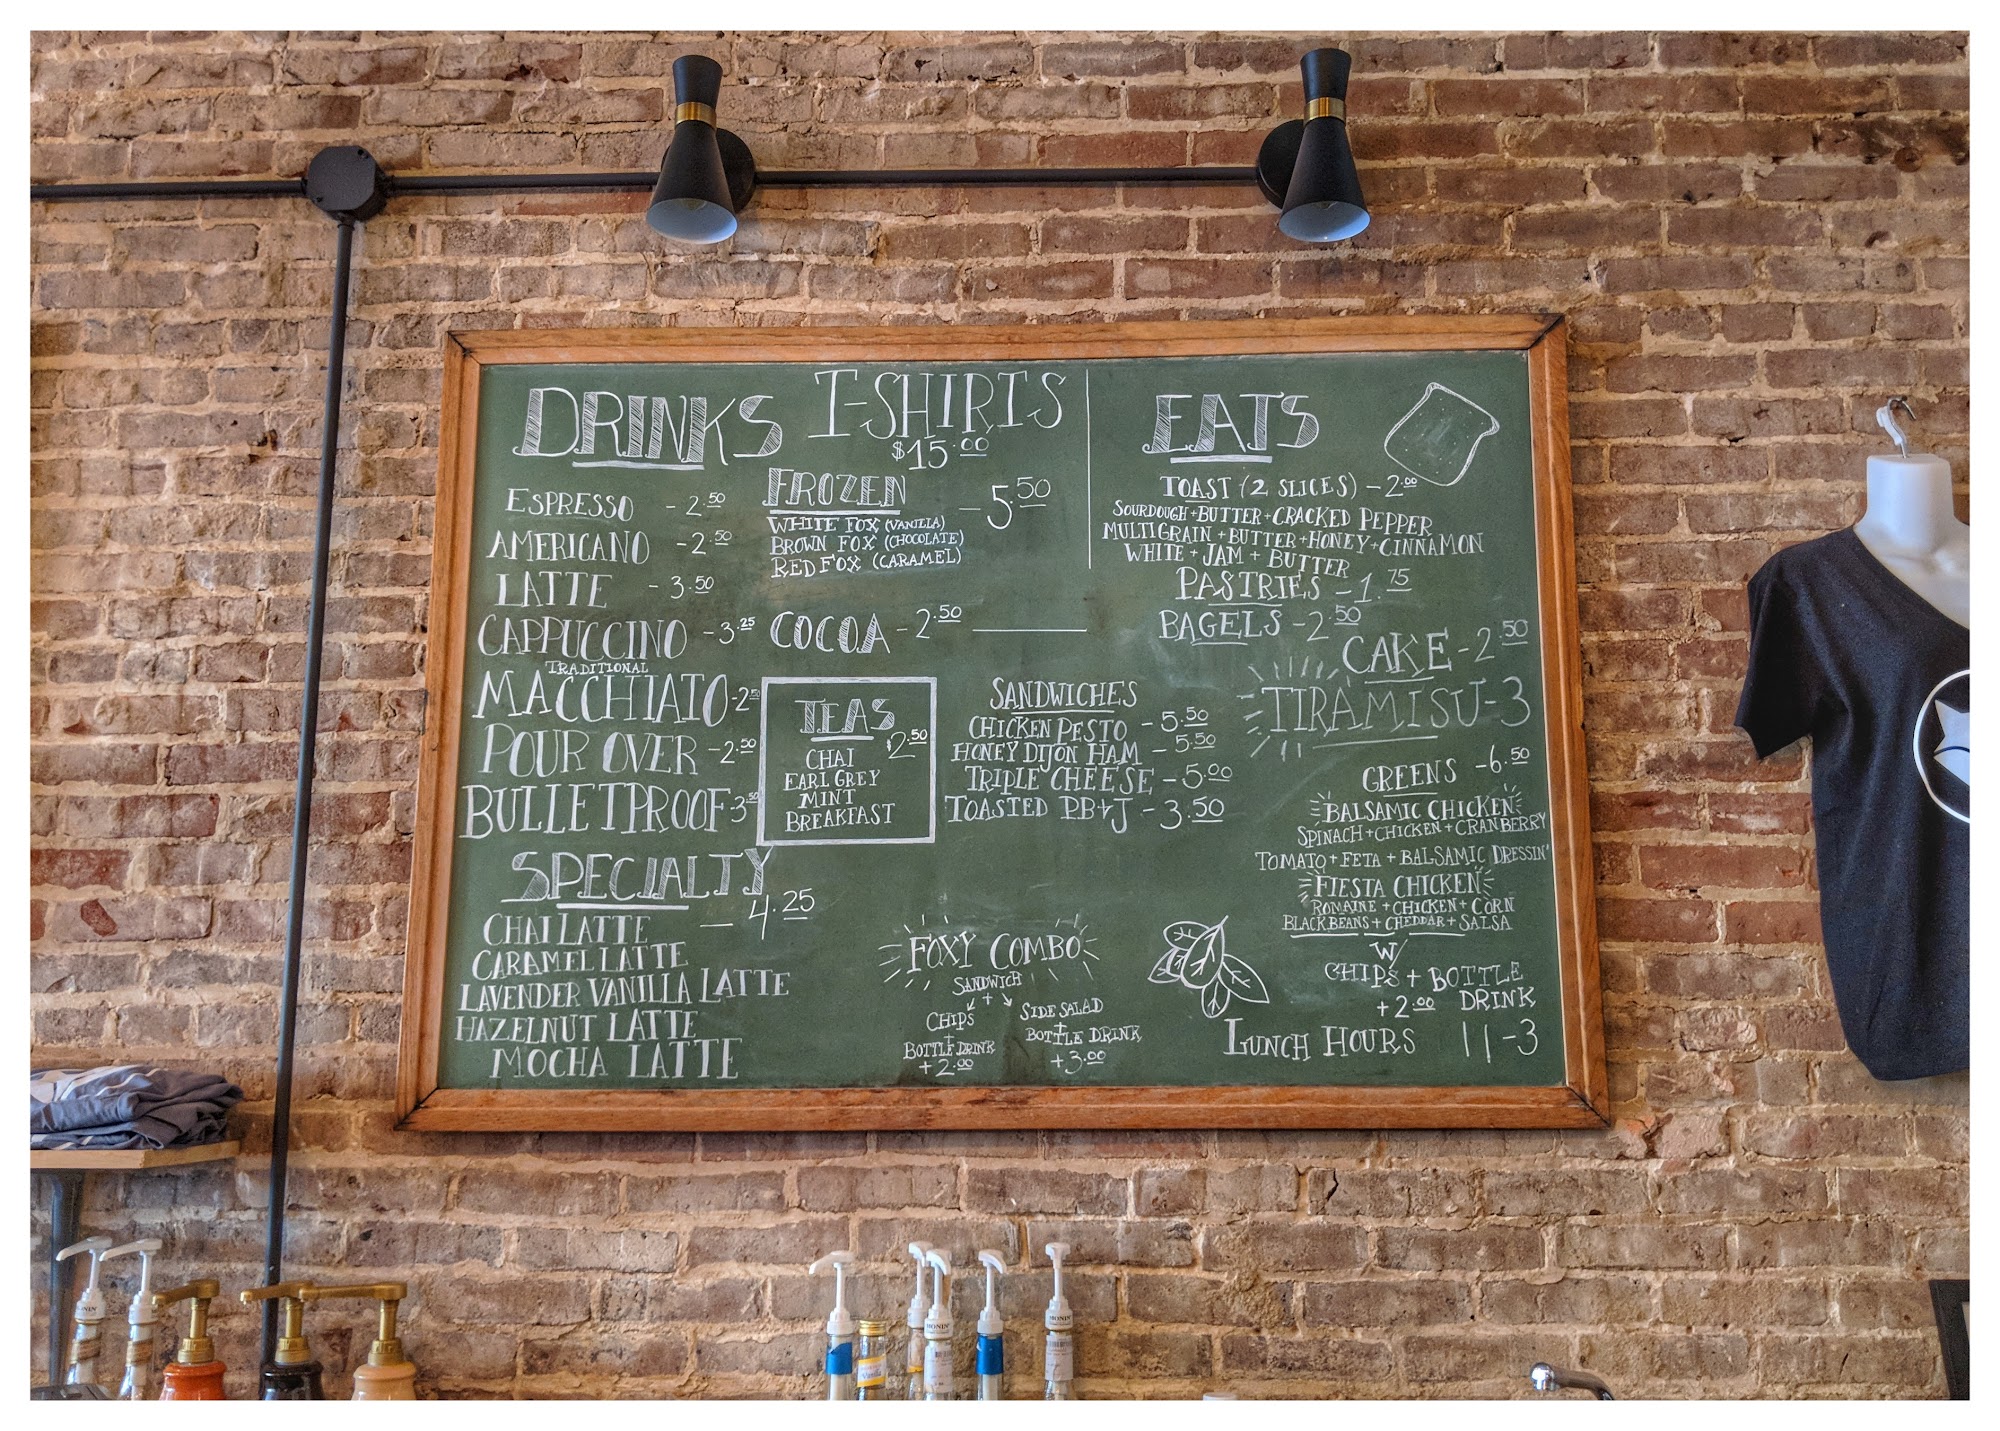 DRINKS
ESPRESSO - 2.50
AMERICANO - 2.50
LATTE - 3.50
CAPPUCCINO - 3.25
TRADITIONAL
MACCHIATO - 2.50
POUR OVER - 2.50
BULLETPROOF - 3.50
SPECIALTY
— 4.25
CHAI LATTE
CARAMEL LATTE
LAVENDER VANILLA LATTE
HAZELNUT LATTE
MOCHA LATTE
T-SHIRTS
$15.00
FROZEN - 5.50
WHITE FOX (VANILLA)
BROWN FOX (CHOCOLATE)
RED FOX (CARAMEL)
COCOA - 2.50
TEAS
$2.50
CHAI
EARL GREY
MINT
BREAKFAST
SANDWICHES
CHICKEN PESTO - 5.50
HONEY DIJON HAM - 5.50
TRIPLE CHEESE - 5.00
TOASTED P.B + J - 3.50
FOXY COMBO
SANDWICH
+
CHIPS
+
BOTTLE DRINK
+2.00
SIDE SALAD
+
BOTTLE DRINK
+3.00
EATS
TOAST (2 SLICES) - 2.00
SOURDOUGH + BUTTER + CRACKED PEPPER
MULTIGRAIN + BUTTER + HONEY + CINNAMON
WHITE + JAM + BUTTER
PASTRIES - 1.75
BAGELS - 2.50
CAKE - 2.50
TIRAMISU - 3
GREENS - 6.50
BALSAMIC CHICKEN
SPINACH + CHICKEN + CRANBERRY
TOMATO + FETA + BALSAMIC DRESSIN'
FIESTA CHICKEN
ROMAINE + CHICKEN + CORN
BLACK BEANS + CHEDDAR + SALSA
W/
CHIPS + BOTTLE
+2.00 DRINK
LUNCH HOURS 11-3
MONIN
MONIN
MONIN
MONIN
Vanilla